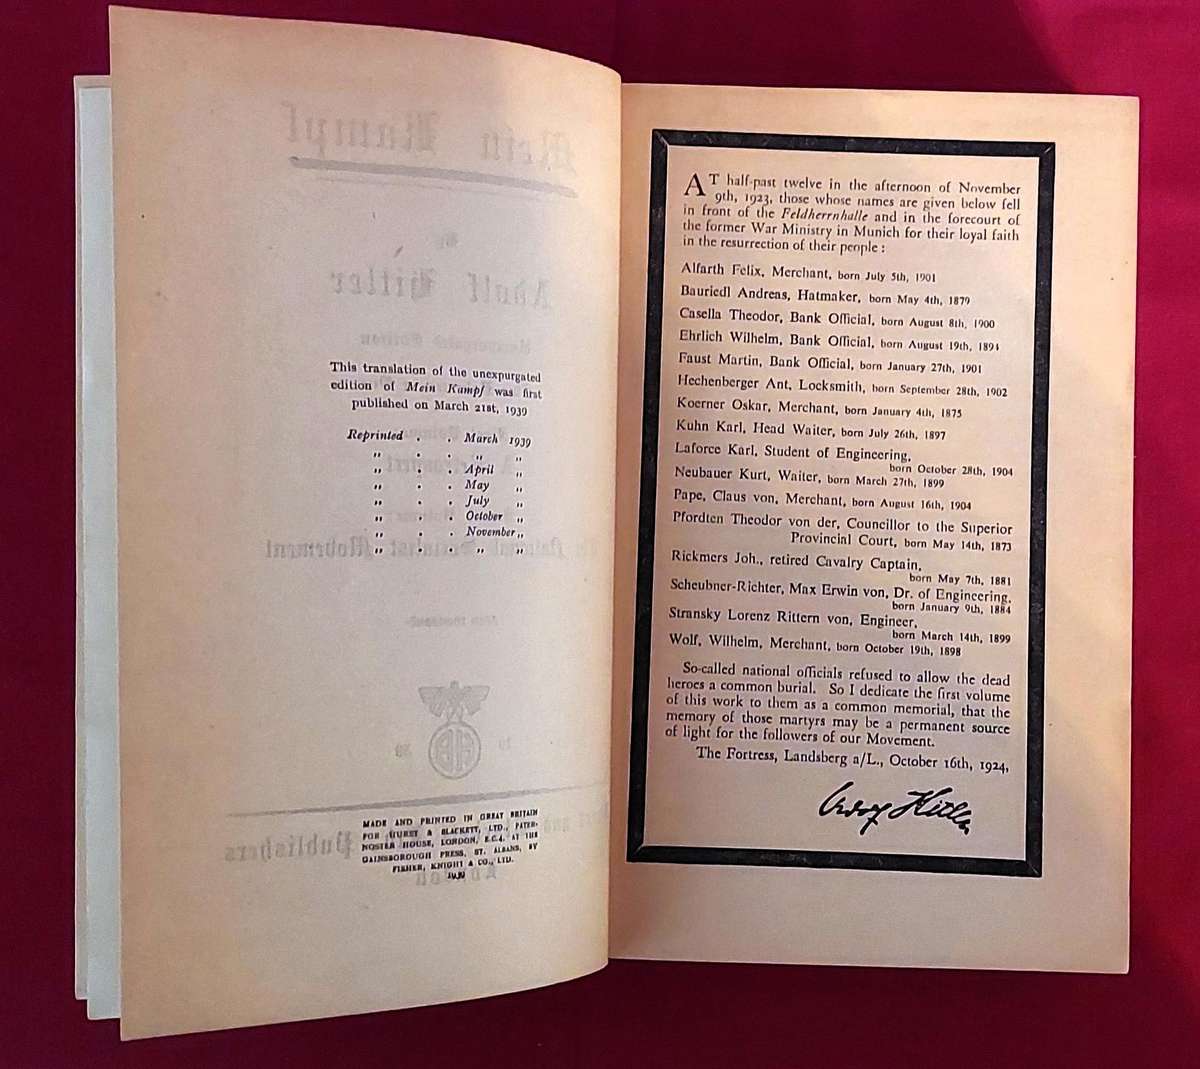 This translation of the unexpurgated
edition of Mein Kampf was first
published on March 21st, 1939
Reprinted . . March 1939
„ . . „ „
„ . . April „
„ . . May „
„ . . July „
„ . . October „
„ . . November „
„ . . „ „
MADE AND PRINTED IN GREAT BRITAIN
FOR HURST & BLACKETT, LTD., PATER-
NOSTER HOUSE, LONDON, E.C.4, AT THE
GAINSBOROUGH PRESS, ST. ALBANS, BY
FISHER, KNIGHT & CO., LTD.
1939
AT half-past twelve in the afternoon of November
9th, 1923, those whose names are given below fell
in front of the Feldherrnhalle and in the forecourt of
the former War Ministry in Munich for their loyal faith
in the resurrection of their people :
Alfarth Felix, Merchant, born July 5th, 1901
Bauriedl Andreas, Hatmaker, born May 4th, 1879
Casella Theodor, Bank Official, born August 8th, 1900
Ehrlich Wilhelm, Bank Official, born August 19th, 1894
Faust Martin, Bank Official, born January 27th, 1901
Hechenberger Ant, Locksmith, born September 28th, 1902
Koerner Oskar, Merchant, born January 4th, 1875
Kuhn Karl, Head Waiter, born July 26th, 1897
Laforce Karl, Student of Engineering,
born October 28th, 1904
Neubauer Kurt, Waiter, born March 27th, 1899
Pape, Claus von, Merchant, born August 16th, 1904
Pfordten Theodor von der, Councillor to the Superior
Provincial Court, born May 14th, 1873
Rickmers Joh., retired Cavalry Captain,
born May 7th, 1881
Scheubner-Richter, Max Erwin von, Dr. of Engineering,
born January 9th, 1884
Stransky Lorenz Rittern von, Engineer,
born March 14th, 1899
Wolf, Wilhelm, Merchant, born October 19th, 1898
So-called national officials refused to allow the dead
heroes a common burial. So I dedicate the first volume
of this work to them as a common memorial, that the
memory of those martyrs may be a permanent source
of light for the followers of our Movement.
The Fortress, Landsberg a/L., October 16th, 1924,
Adolf Hitler